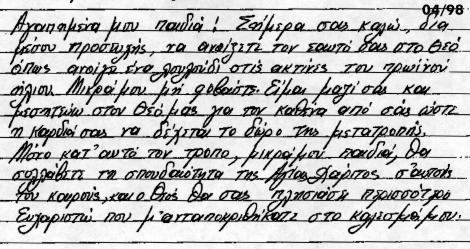 04/98
Αγαπημένα μου παιδιά! Σήμερα σας καλώ, δια
μέσου προσευχής, να ανοίξετε τον εαυτό σας στο Θεό
όπως ανοίγει ένα λουλούδι στις ακτίνες του πρωϊνού
ήλιου. Μικρά μου μη φοβάστε. Είμαι μαζί σας και
μεσητεύω στον Θεό μας για τον καθένα από σας ώστε
η καρδιά σας να δέχεται το δώρο της μετατροπής.
Μόνο κατ' αυτό τον τροπο, μικρά μου παιδιά, θα
συλλάβετε τη σπουδαιότητα της Αγίας Χάριτος σ' αυτούς
του καιρούς, και ο Θεός θα σας πλησιάσει περισσότερο
Ευχαριστώ που μ' ανταποκριθήκατε στο κάλεσμά μου.